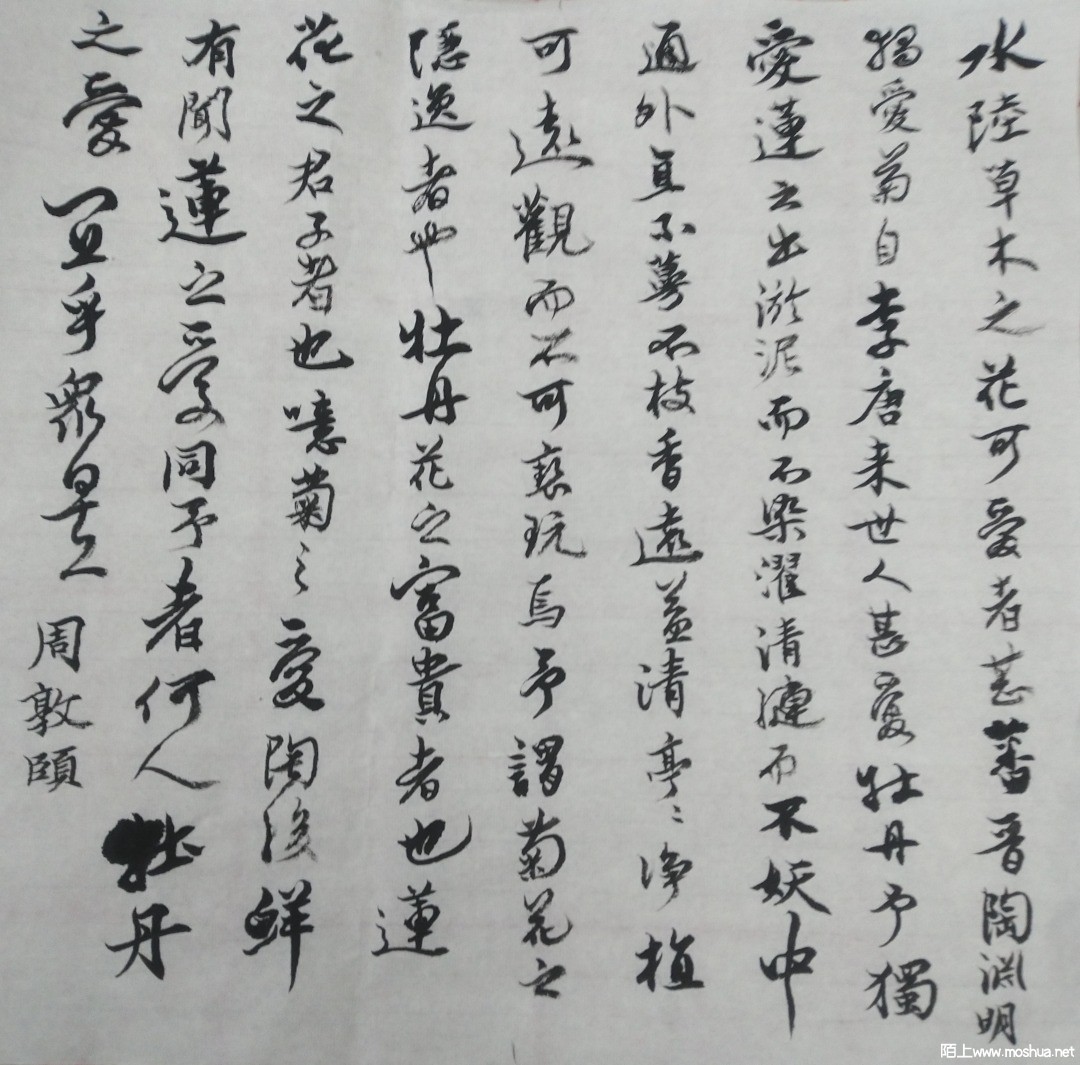 水陸草木之花可愛者甚蕃晋陶淵明
獨愛菊自李唐来世人甚愛牡丹予獨
愛蓮之出淤泥而不染濯清漣而不妖中
通外直不蔓不枝香遠益清亭〻淨植
可遠觀而不可褻玩焉予謂菊花之
隠逸者也牡丹花之富貴者也蓮
花之君子者也噫菊之愛陶後鮮
有聞蓮之愛同予者何人牡丹
之愛宜乎衆矣
周敦頤
陌上www.moshua.net